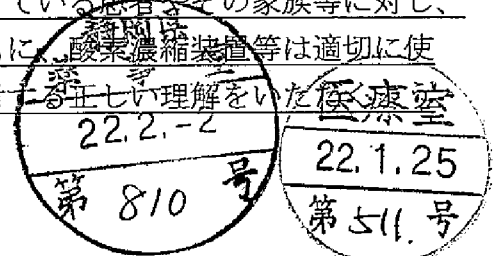 ている患者やその家族等に対し、
に、酸素濃縮装置等は適切に使
する正しい理解をいただく
静岡県
22.2.-2
第 810 号
医療室
22.1.25
第 511. 号